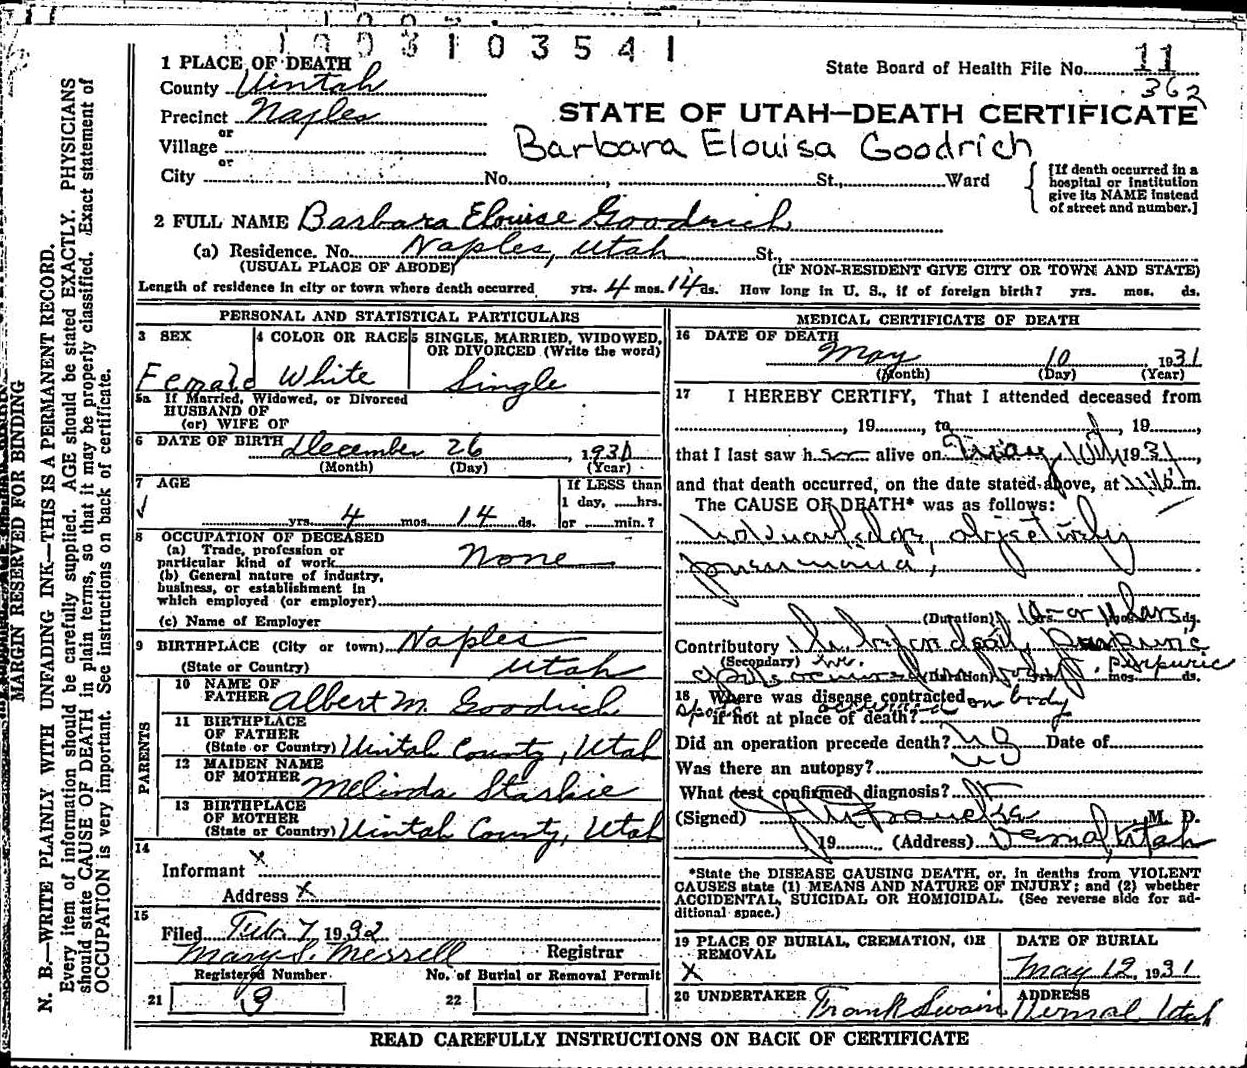 1003103541
1 PLACE OF DEATH
State Board of Health File No. 11
County Uintah
362
Precinct Naples
STATE OF UTAH—DEATH CERTIFICATE
or
Village
Barbara Elouisa Goodrich
or
City No. , St., Ward
[If death occurred in a hospital or institution give its NAME instead of street and number.]
2 FULL NAME Barbara Elouise Goodrich
(a) Residence. No. Naples, Utah St.,
(USUAL PLACE OF ABODE) (IF NON-RESIDENT GIVE CITY OR TOWN AND STATE)
Length of residence in city or town where death occurred yrs. 4 mos. 14 ds. How long in U. S., if of foreign birth? yrs. mos. ds.
PERSONAL AND STATISTICAL PARTICULARS
3 SEX
Female
4 COLOR OR RACE
White
5 SINGLE, MARRIED, WIDOWED,
OR DIVORCED (Write the word)
Single
5a If Married, Widowed, or Divorced
HUSBAND OF
(or) WIFE OF
6 DATE OF BIRTH December 26, 193
(Month) (Day) (Year)
7 AGE
yrs. 4 mos. 14 ds.
If LESS than
1 day, hrs.
or min.?
8 OCCUPATION OF DECEASED
(a) Trade, profession or
particular kind of work None
(b) General nature of industry,
business, or establishment in
which employed (or employer)
(c) Name of Employer
9 BIRTHPLACE (City or town) Naples
(State or Country) Utah
PARENTS
10 NAME OF
FATHER Albert M. Goodrich
11 BIRTHPLACE
OF FATHER
(State or Country) Uintah County, Utah
12 MAIDEN NAME
OF MOTHER Melinda Starkie
13 BIRTHPLACE
OF MOTHER
(State or Country) Uintah County, Utah
14
Informant x
Address x
15
Filed Feb. 7 1932
Mary S. Merrell Registrar
Registered Number
21 3
No. of Burial or Removal Permit
22
MEDICAL CERTIFICATE OF DEATH
16 DATE OF DEATH
May 10 1931
(Month) (Day) (Year)
17 I HEREBY CERTIFY, That I attended deceased from
, 19 , to , 19 ,
that I last saw h alive on May 10th 1931,
and that death occurred, on the date stated above, at m.
The CAUSE OF DEATH* was as follows:
No Knowledge, objectively
pneumonia,
(Duration) yrs. 10 or 11 mos. hours ds.
Contributory
(Secondary)
(Duration) yrs. mos. ds.
purpuric
18 Where was disease contracted
if not at place of death?
spots on body
Did an operation precede death? no Date of
Was there an autopsy? no
What test confirmed diagnosis?
(Signed) , M. D.
, 19 (Address) Vernal, Utah
*State the DISEASE CAUSING DEATH, or, in deaths from VIOLENT
CAUSES state (1) MEANS AND NATURE OF INJURY; and (2) whether
ACCIDENTAL, SUICIDAL OR HOMICIDAL. (See reverse side for ad-
ditional space.)
19 PLACE OF BURIAL, CREMATION, OR
REMOVAL
X
DATE OF BURIAL
May 12, 1931
20 UNDERTAKER Frank Swain
ADDRESS
Vernal Utah
READ CAREFULLY INSTRUCTIONS ON BACK OF CERTIFICATE
MARGIN RESERVED FOR BINDING
N. B.—WRITE PLAINLY WITH UNFADING INK—THIS IS A PERMANENT RECORD.
Every item of information should be carefully supplied. AGE should be stated EXACTLY. PHYSICIANS
should state CAUSE OF DEATH in plain terms, so that it may be properly classified. Exact statement of
OCCUPATION is very important. See instructions on back of certificate.